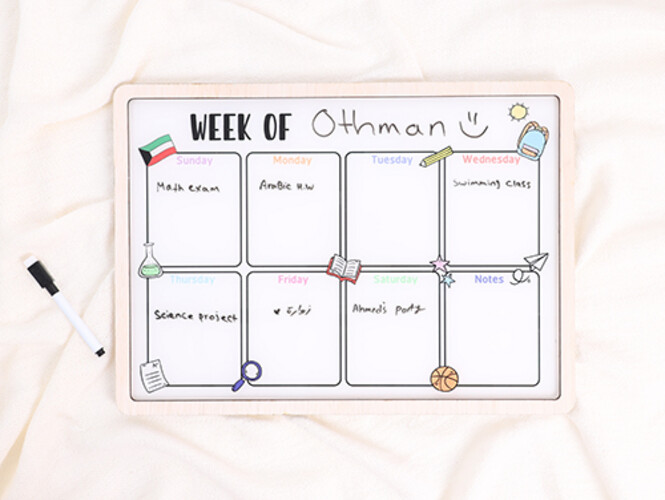 WEEK OF Othman
Sunday
Math exam
Monday
Arabic H.W
Tuesday
Wednesday
Swimming class
Thursday
Science project
Friday
زوارة ♥
Saturday
Ahmed's party
Notes